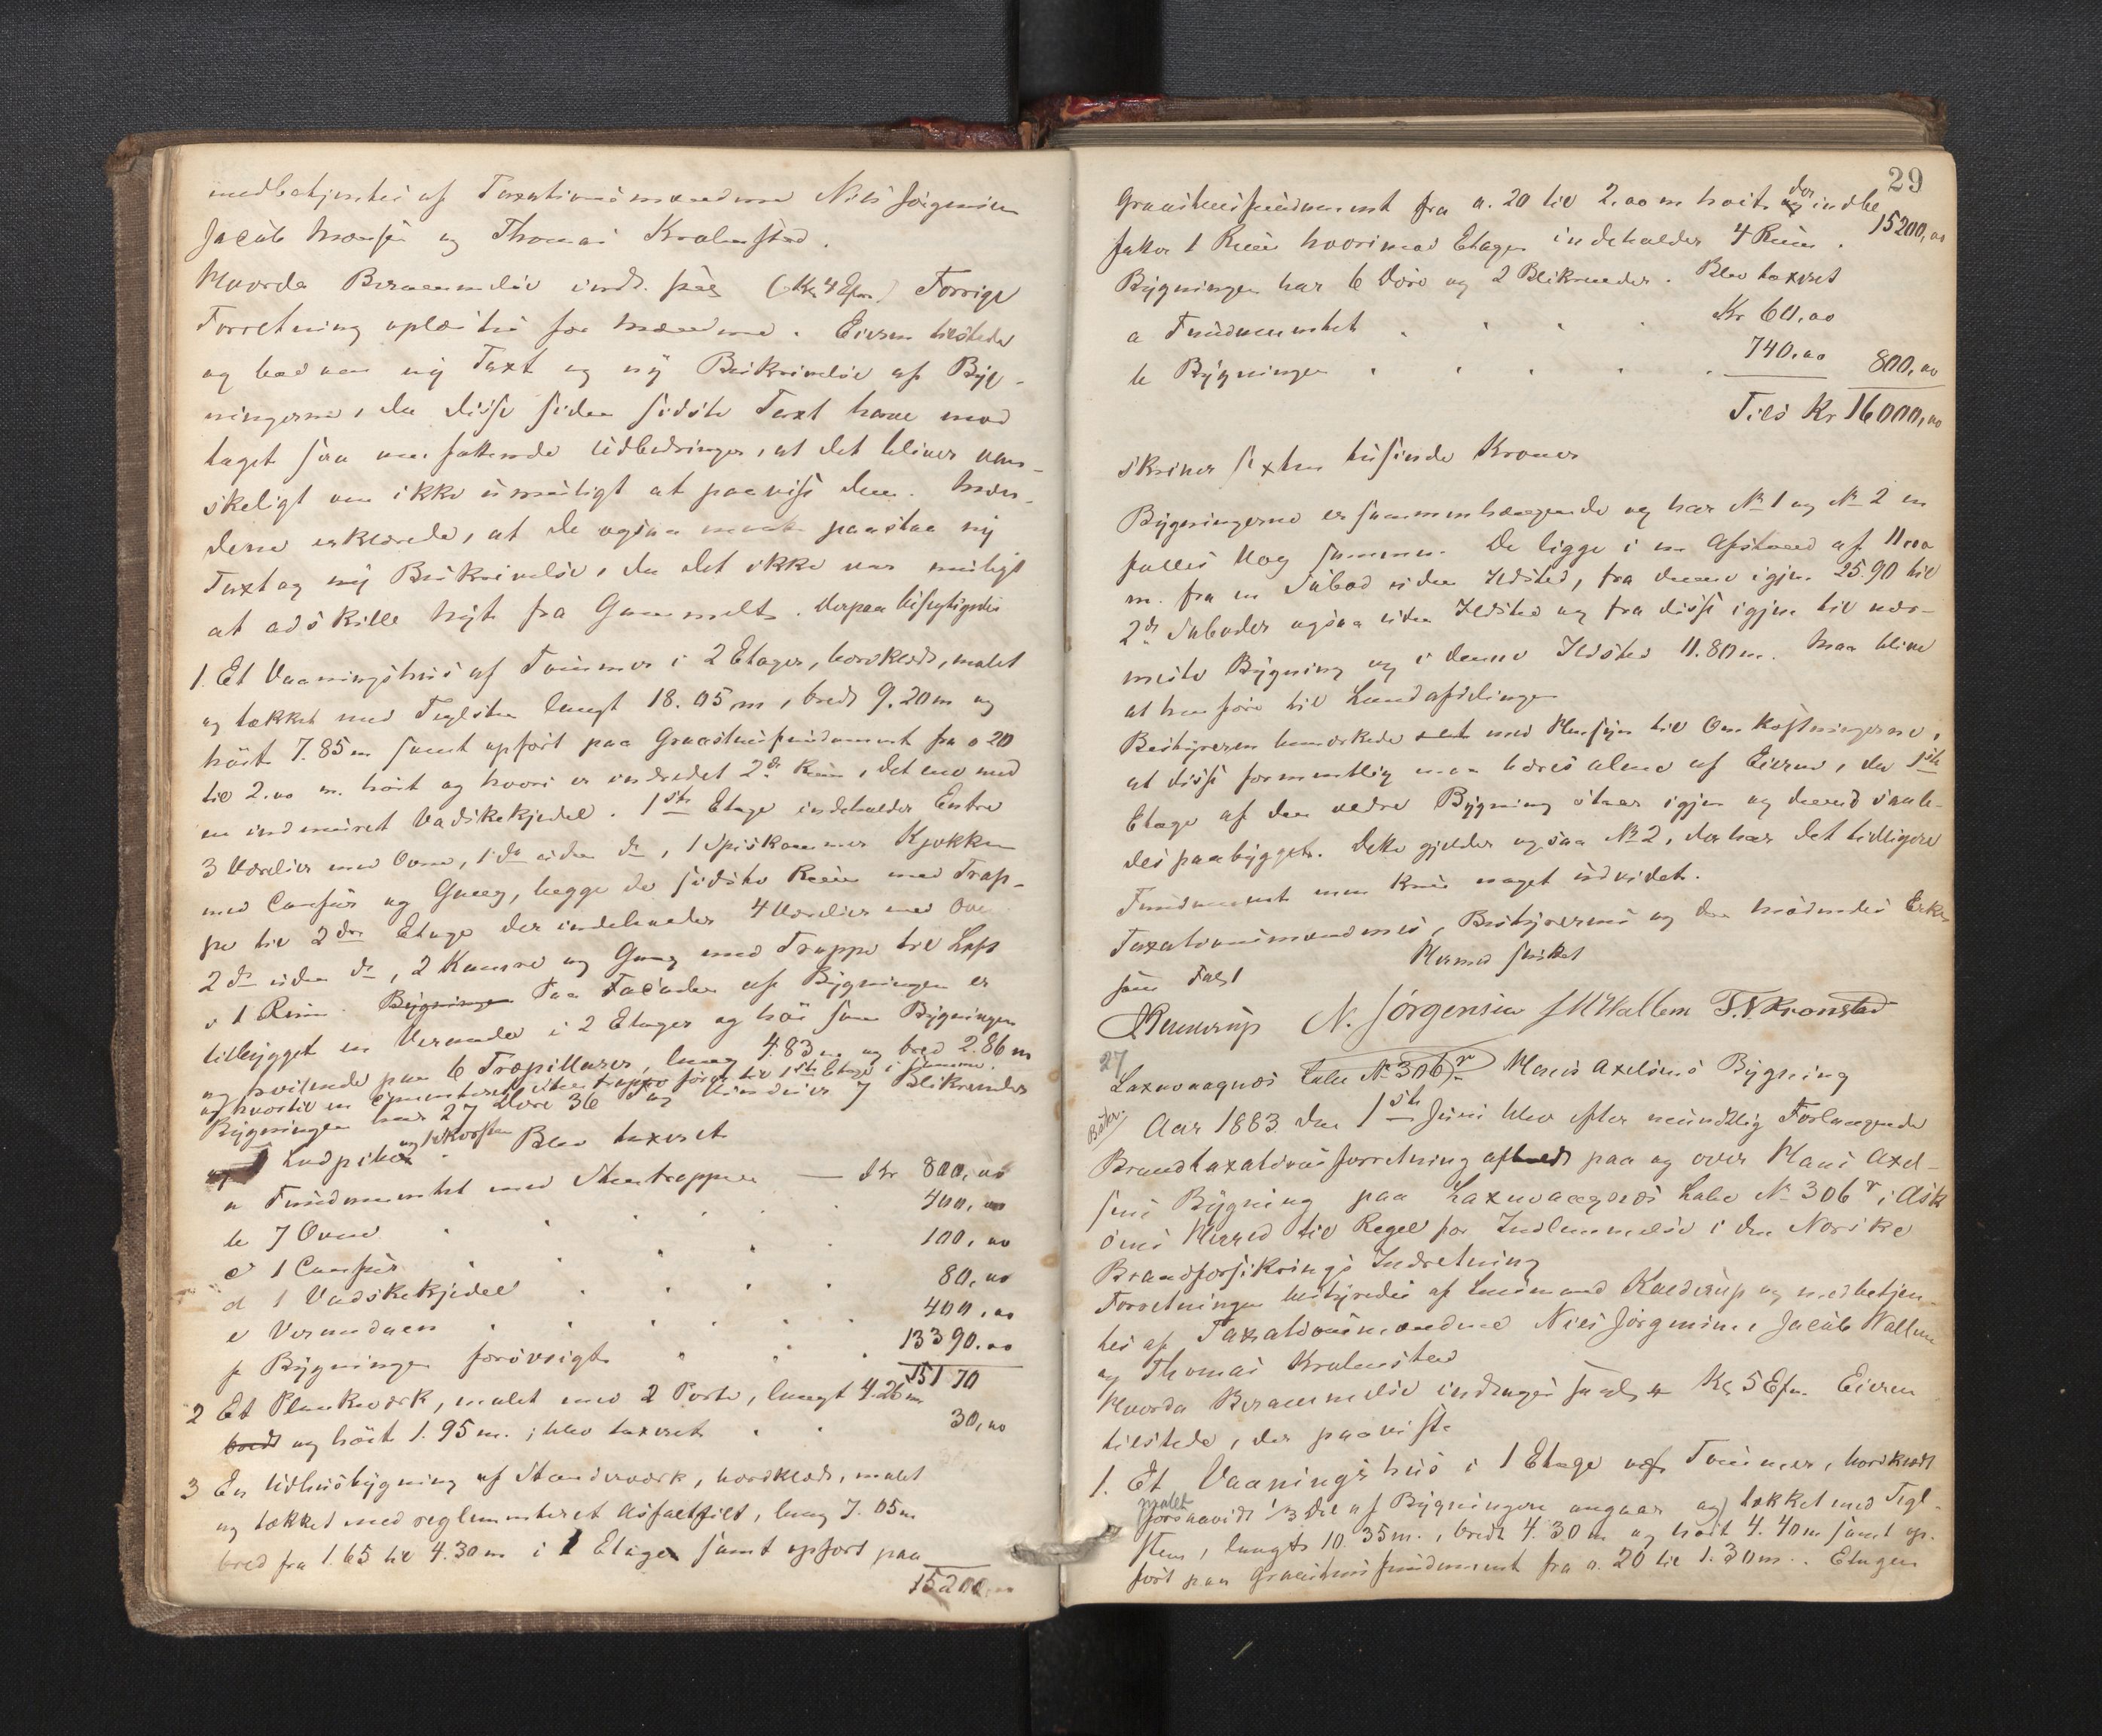 medbetjentes af Taxationsmændene Niels Jørgensen
Jacob Hansen og Thomas Kronstad.
Hvorda Berammelse indt. saa (Kr 4 Efm.) Forrige
Forretning oplæstes for Mændene. Eieren tilstede
og bad om ny Taxt og ny Beskrivelse af Byg-
ningerne, da disse siden sidste Taxt have mod
taget saa omfattende Udbedringer, at det bliver van-
skeligt om ikke umuligt at paavise dem. Mæn-
dene erklærede, at de ogsaa maate paastaa ny
Taxt og ny Beskrivelse, da det ikke var muligt
at adskille Nyt fra Gammelt. Derpaa besigtigedes
1. Et Vaaningshus af Tømmer i 2 Etager, bordklædt, malet
og tækket med Teglsten langt 18.05 m, bredt 9.20 m og
høit 7.85 m samt opført paa Graastensfundament fra 0.20
til 2.00 m. høit og hvori er indredet 2de Rum, det ene med
en indmuret Vadskekjedel. 1ste Etage indeholder Entre
3 Værelser med Ovne, 1 do uden do, 1 Spiskammer Kjøkken
med Comfur og Gang, begge de sidste Rum med Trap-
pe til 2den Etage der indeholder 4 Værelser med Ovn
2 do uden do, 2 Kamre og Gang med Trappe til Loft
1 Rum. Bygningen Paa Facaden af Bygningen er
tilbygget en Veranda i 2 Etager og høi som Bygningen
og hvilende paa 6 Træpillarer, lang 4.83 m og bred 2.86 m
og hvortil en cementeret Stentrappe fører til 1ste Etage i samme.
Bygningen har 27 Døre 36 Fag Vinduer 7 Blikrender
og 1 Ludpibe og 1 Skorsten. Blev taxeret
a Fundamentet med Stentrappen — Kr 800,00
b 7 Ovne . . . . 400,00
c 1 Comfur . . . . 100,00
d 1 Vadskekjedel . . . . 80,00
e Verandaen . . . . 400,00
f Bygningen forøvrigt . . . 13390.00
15170
2 Et Plankeværk, malet med 2 Porte, langt 4.26 m
bredt og høit 1.95 m.; blev taxeret . . 30,00
3 En Udhusbygning af Standerværk, bordklædt, malet
og tækket med reglementeret Asfaltfilt, lang 7.05 m
bred fra 1.65 til 4.30 m i 1 Etage samt opført paa
15200,00
29
Graastensfundament fra 0.20 til 2.00 m høit og der indbe
15200,00
fatter 1 Rum hvorimod Etagen indeholder 4 Rum.
Bygningen har 6 Døre og 2 Blikrender. Blev taxeret
a Fundamentet . . . . Kr 60,00
b Bygningen . . . . . 740,00 800,00
Tils Kr 16000,00
skriver sexten tusinde Kroner
Bygningerne er sammenhængende og har No 1 og No 2 en
fælles Væg sammen. De ligge i en Afstand af 11.00
m. fra en Søbod uden Ildsted, fra denne igjen 25.90 til
2de Søboder ogsaa uden Ildsted og fra disse igjen til nær-
meste Bygning og i denne Ildsted 11.80 m. Maa blive
at henføre til Landafdelingen
Bestyreren bemærkede med Hensyn til Omkostningerne,
at disse formentlig maa bæres alene af Eieren, da 1ste
Etage af den ældre Bygning staar igjen og derved saale-
des paabygget. Dette gjælder ogsaa No 2, der har det tidligere
Fundament men kun noget udvidet.
Taxationsmændenes, Bestyrerens og den mødendes Erkj
som Følgt
Hermed sluttet
N. Jørgensen J H Wallem T. N. Kronstad
27
Laxevaagnæs Løbe No 306r Hans Axelsens Bygning
Aar 1883 den 1ste Juni blev efter mundtlig Forlangende
Brandtaxationsforretning afholdt paa og over Hans Axel-
sens Bygning paa Laxevaagnæs Løbe No 306r i Ask
øens Herred til Regel for Indlemmelse i den Norske
Brandforsikrings Indretning
Forretningen bestyredes af Lensmand Kuldrup og medbetjen-
tes af Taxationsmændene Niels Jørgensen, Jacob Wallem
og Thomas Kronstad
Hvorda Berammelse indtages saal. Kl 5 Efm. Eieren
tilstede, der paaviste
1. Et Vaaningshus i 1 Etage af Tømmer, bordklædt
malet
forsaavidt 1/3 Del af Bygningen angaar og tækket med Tegl-
sten, langt 10.35 m., bredt 4.30 m og høit 4.40 m samt op-
ført paa Graastensfundament fra 0.20 til 1.30 m. Etagen